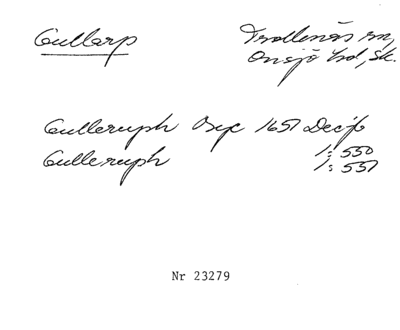 Gullarp Trollenäs sn,
Onsjö hd, Sk.
Gulleruph 1651 Decjb
Gulleruph 1: 550
1: 551
Nr 23279